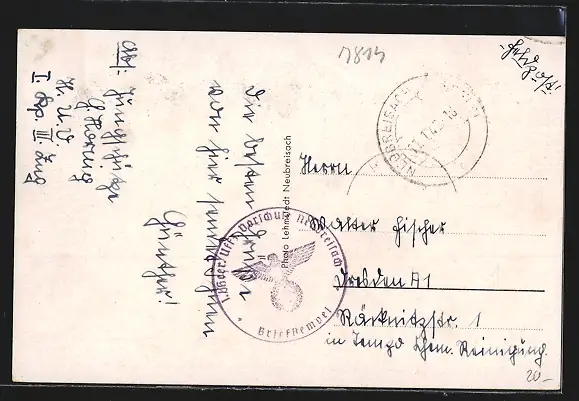 17814
Feldpost!
NEUBREISACH
Abs: Jungschütze
G. Hornug
H. U. V.
I Kp. III. Zug
Die besten Grüße
von hier sendet Ihnen
Günther!
Photo Lehmstedt Neubreisach
Herrn
Walter Fischer
Dresden A1
Räcknitzstr. 1
in Tempo Chem. Reinigung.
Heer. Uffz. Vorschule Neubreisach
Briefstempel
20.-